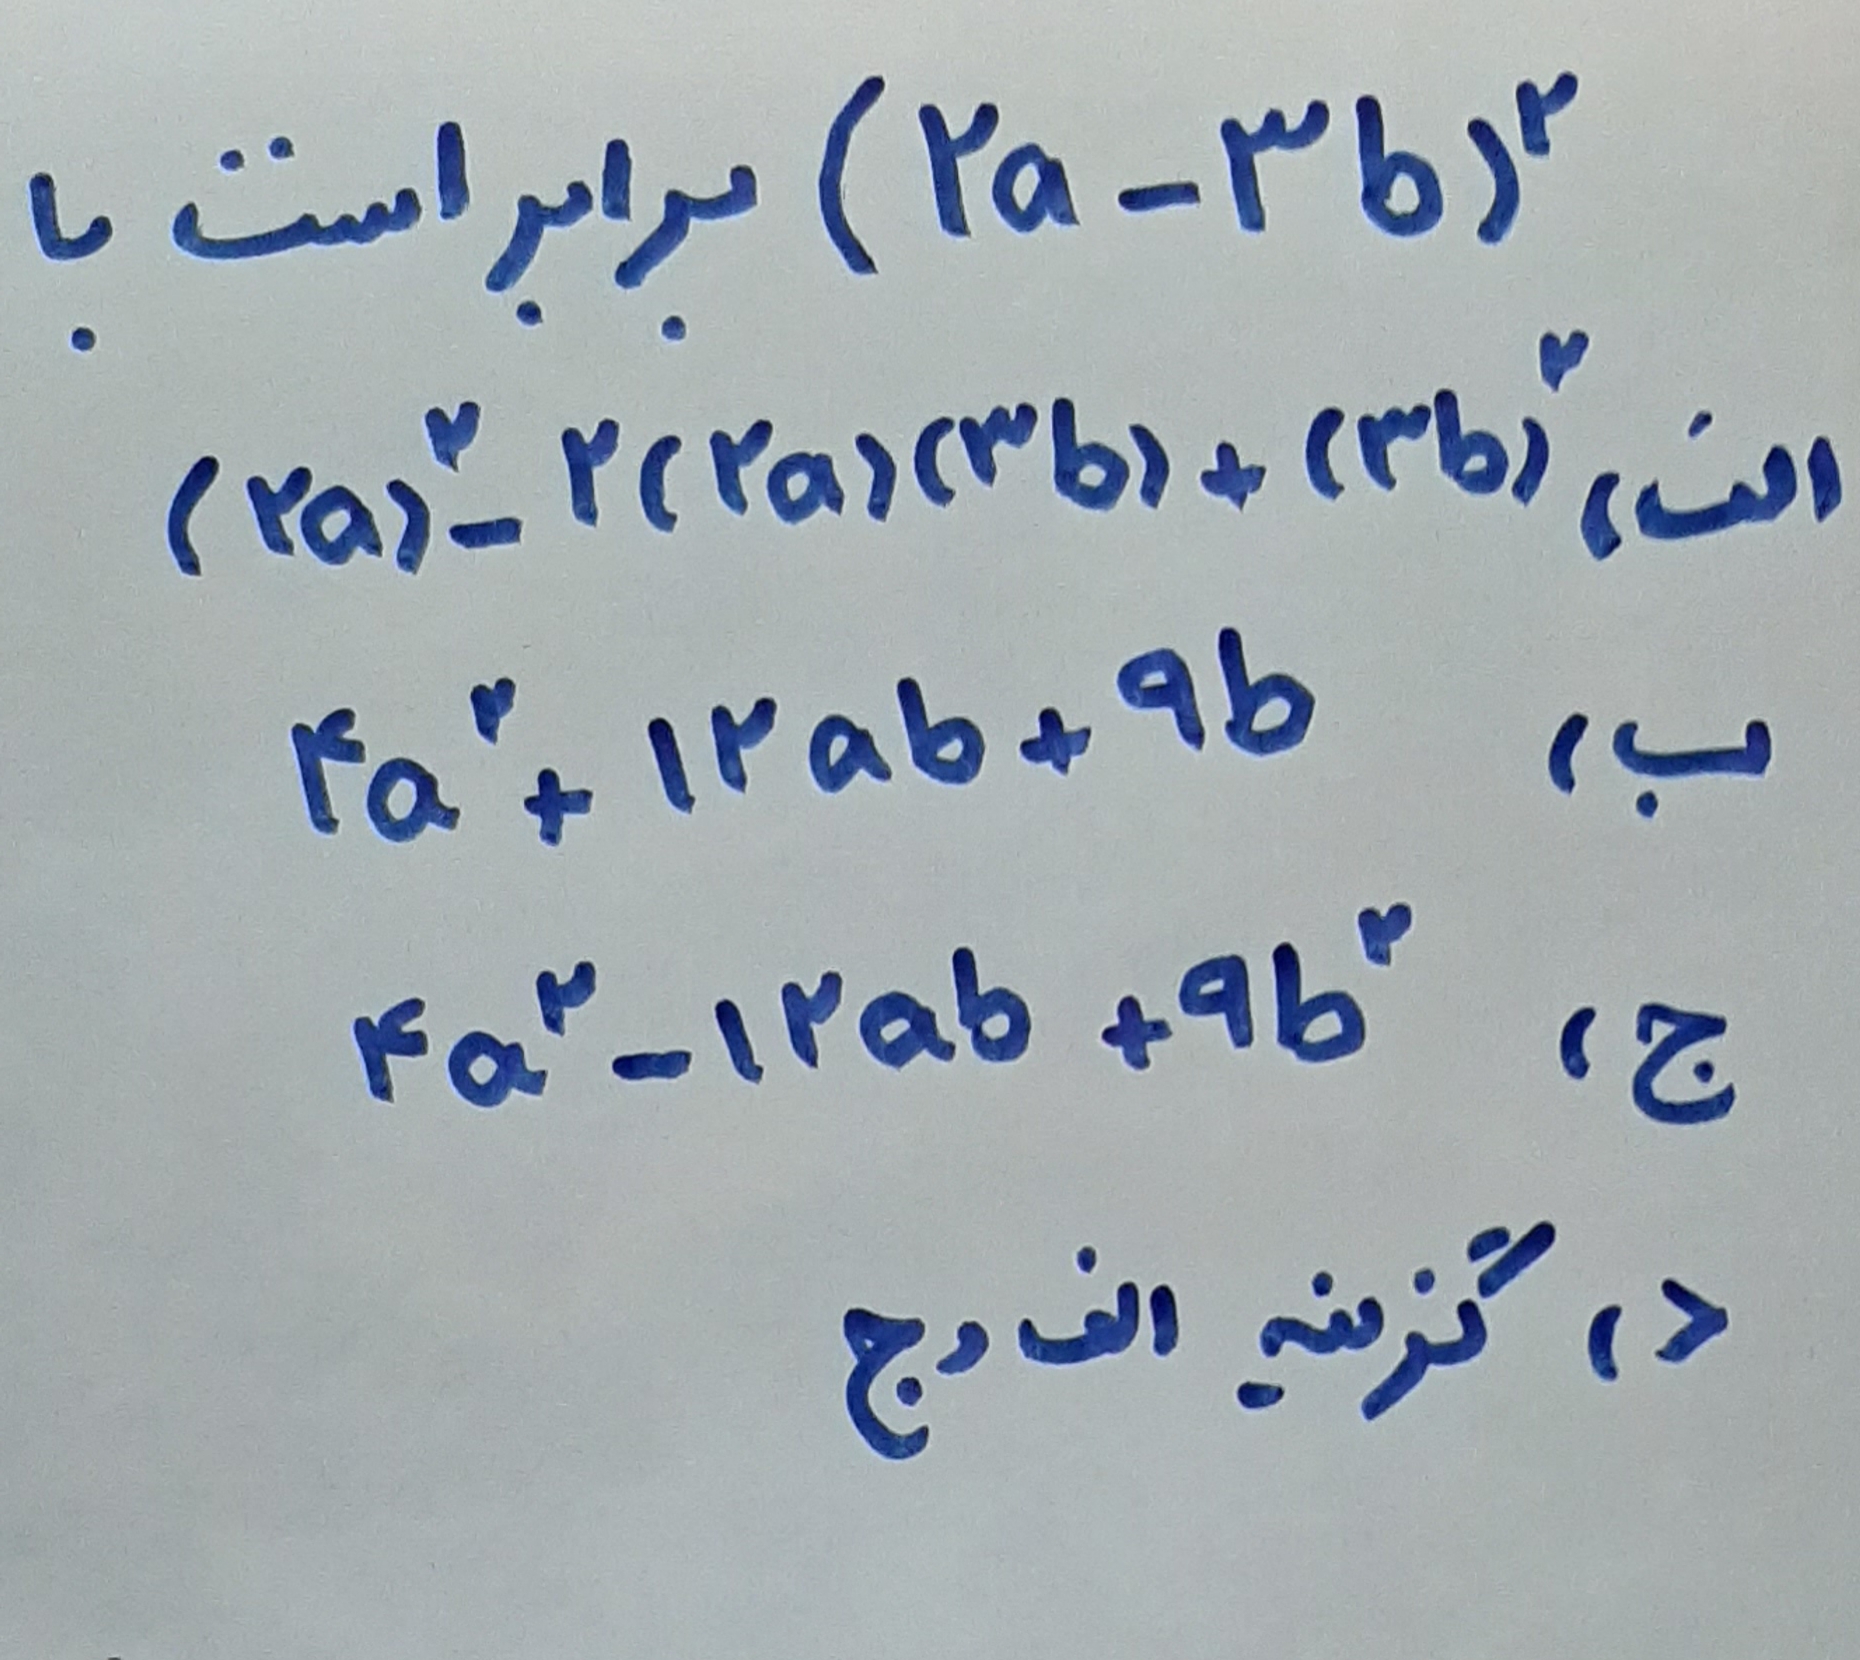 (۲a - ۳b)^۲ برابر است با
الف) (۲a)^۲ - ۲(۲a)(۳b) + (۳b)^۲
ب) ۴a^۲ + ۱۲ab + ۹b
ج) ۴a^۲ - ۱۲ab + ۹b^۲
د) گزینه الف و ج